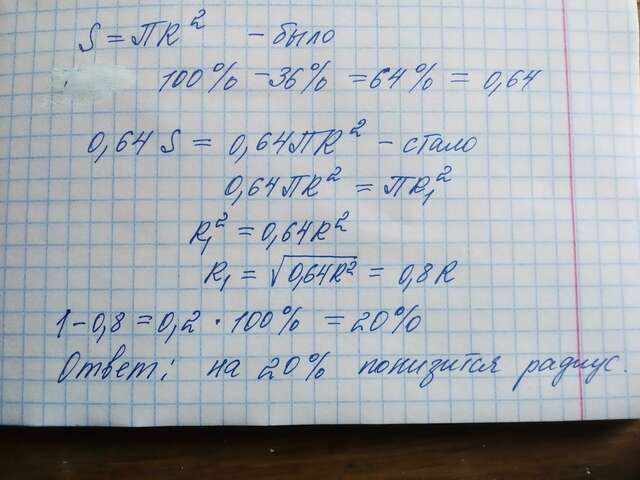 S = ПR² - было
100% - 36% = 64% = 0,64
0,64 S = 0,64ПR² - стало
0,64ПR² = ПR₁²
R₁² = 0,64R²
R₁ = √0,64R² = 0,8R
1 - 0,8 = 0,2 · 100% = 20%
Ответ: на 20% понизится радиус.